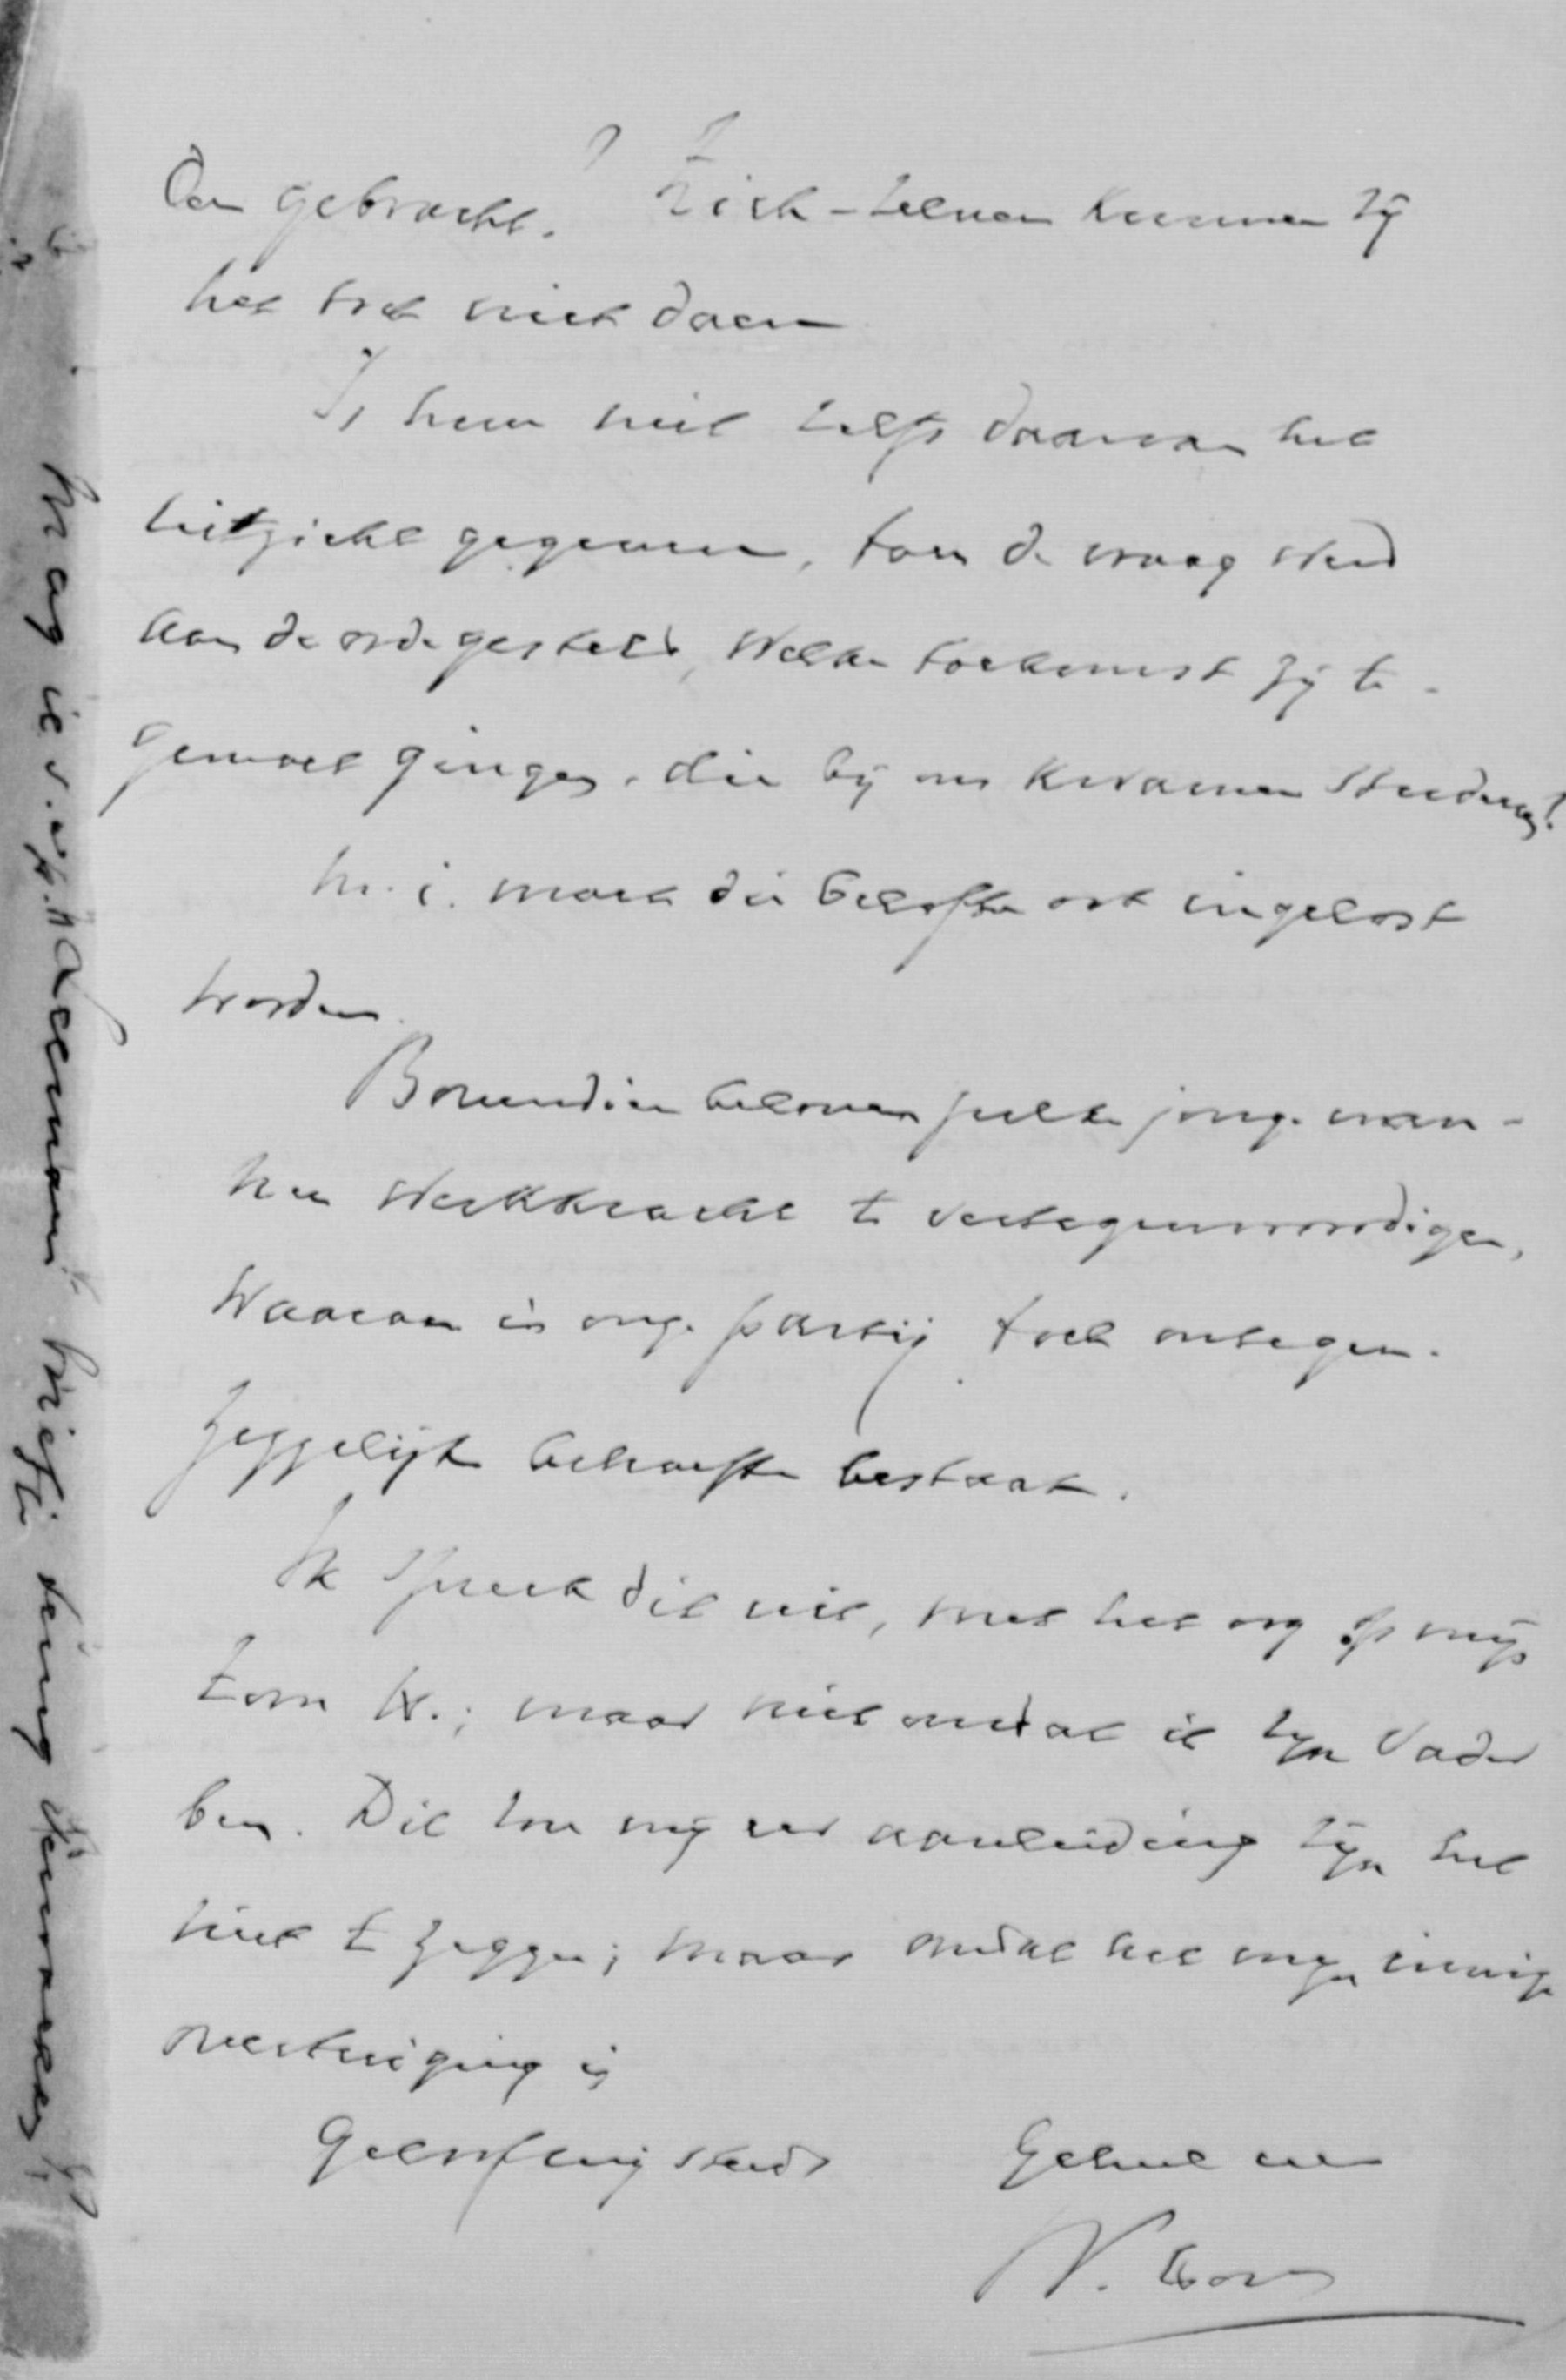 den gebracht. Zich-zelven kunnen zij
het toch niet doen
Is hun niet zelfs daarvan het
uitzicht gegeven, toen de vraag werd
aan de orde gesteld, welke toekomst zij te-
gemoet gingen, die bij ons kwamen studeeren?
M.i. moet die belofte ook ingelost
worden.
Bovendien beloven zulke jonge man-
nen werkkracht te vertegenwoordigen,
waaraan in onze partij toch ontegen-
zeggelijk behoefte bestaat.
Ik spreek dit uit, met het oog op mijn
zoon W.; maar niet omdat ik zijn Vader
ben. Dit zou mij eer aanleiding zijn het
niet te zeggen; maar omdat het mijn innige
overtuiging is
Geloof mij steeds
Geheel uw
Mag ik s.v.p. nadenmans briefje terug verwachten?